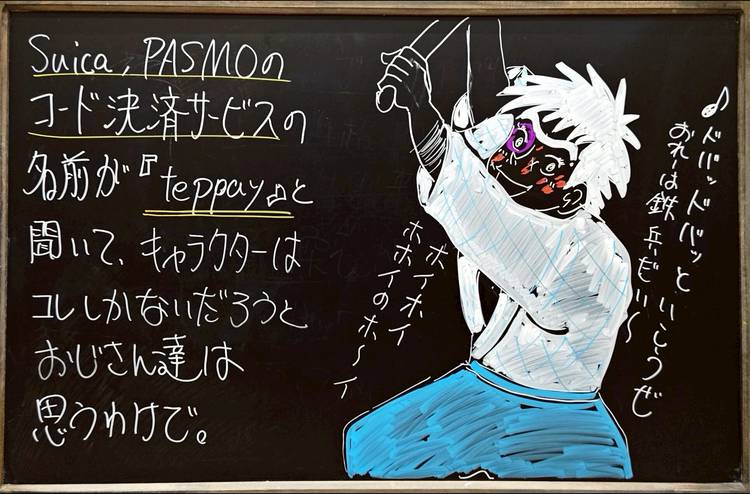 Suica, PASMOの
コード決済サービスの
名前が『teppay』と
聞いて、キャラクターは
コレしかないだろうと
おじさん達は
思うわけで。
♪ドバッドバッといこうぜ
おれは鉄兵だい〜
ホイホイ
ホホイのホ〜イ